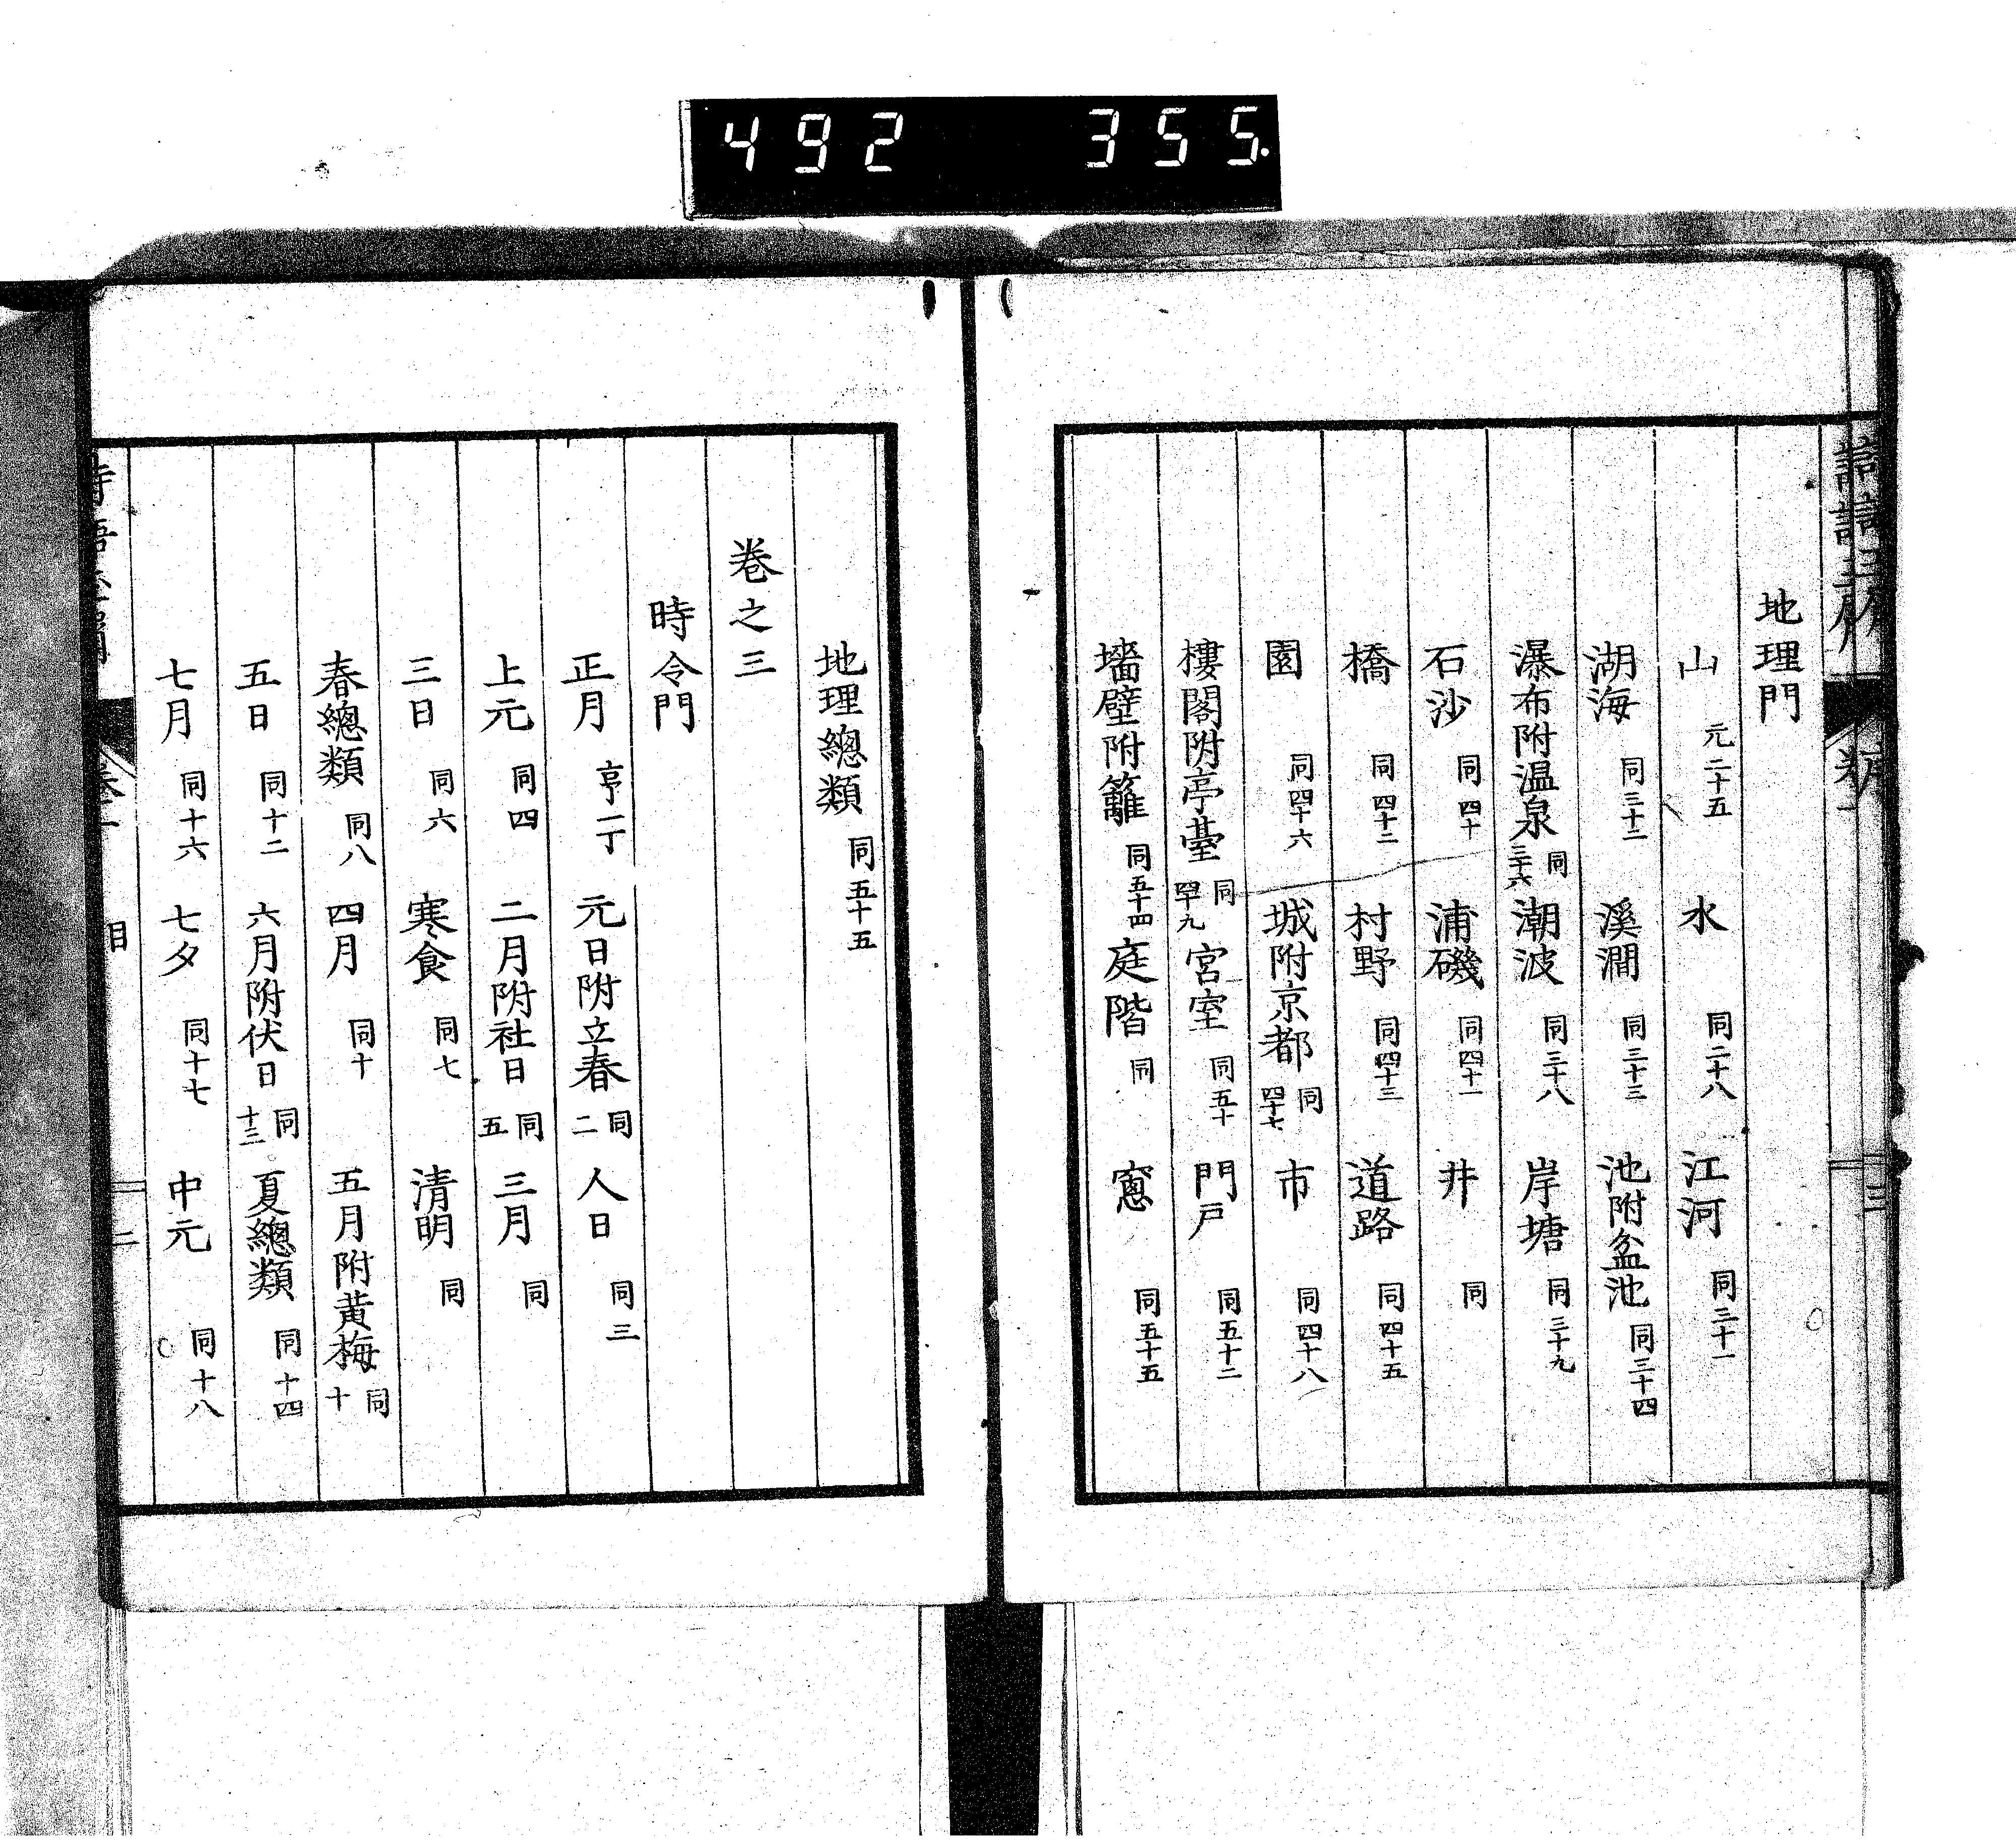 492 355.
地理門
山 元二十五 水 同二十八 江河 同三十一
湖海 同三十二 溪澗 同三十三 池附盆池 同三十四
瀑布附温泉 同三十六 潮波 同三十八 岸塘 同三十九
石沙 同四十 浦磯 同四十一 井 同
橋 同四十二 村野 同四十三 道路 同四十五
園 同四十六 城附京都 同四十七 市 同四十八
樓閣附亭臺 同四十九 宮室 同五十 門戸 同五十二
墻壁附籬 同五十四 庭階 同 窻 同五十五
地理總類 同五十五
卷之三
時令門
正月 亨一丁 元日附立春 同二 人日 同三
上元 同四 二月附社日 同五 三月 同
三日 同六 寒食 同七 清明 同
春總類 同八 四月 同十 五月附黃梅 同十
五日 同十二 六月附伏日 同十三 夏總類 同十四
七月 同十六 七夕 同十七 中元 同十八